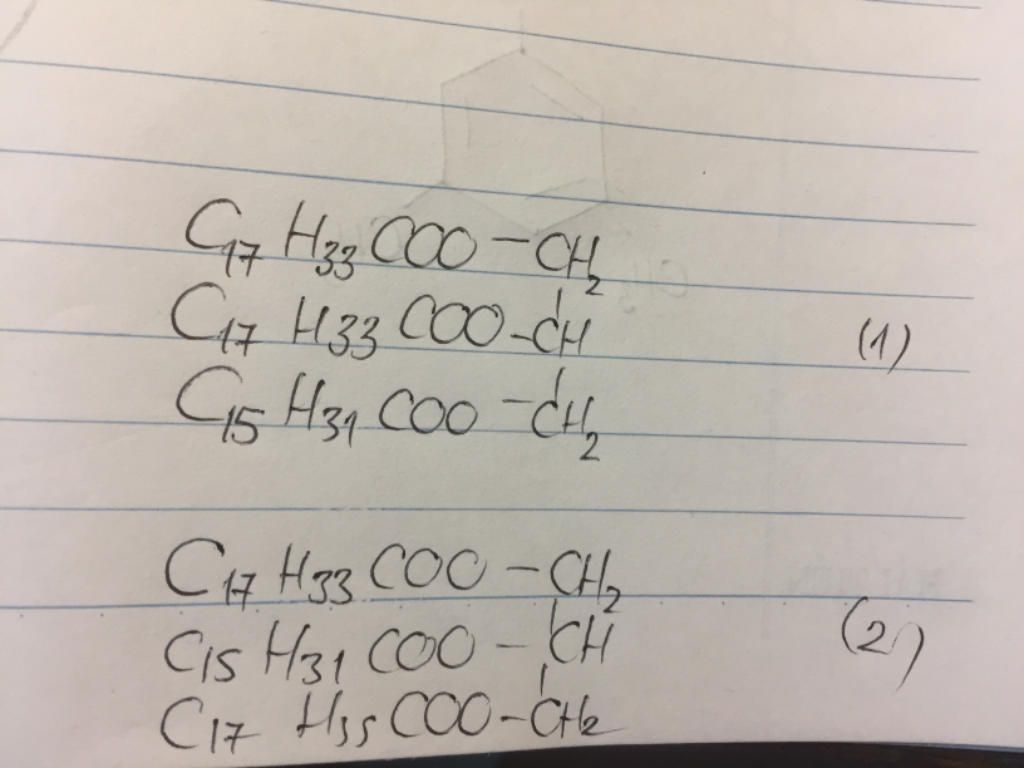 C₁₇H₃₃COO–CH₂
C₁₇H₃₃COO–CH (1)
C₁₅H₃₁COO–CH₂
C₁₇H₃₃COO–CH₂
C₁₅H₃₁COO–CH (2)
C₁₇H₃₅COO–CH₂